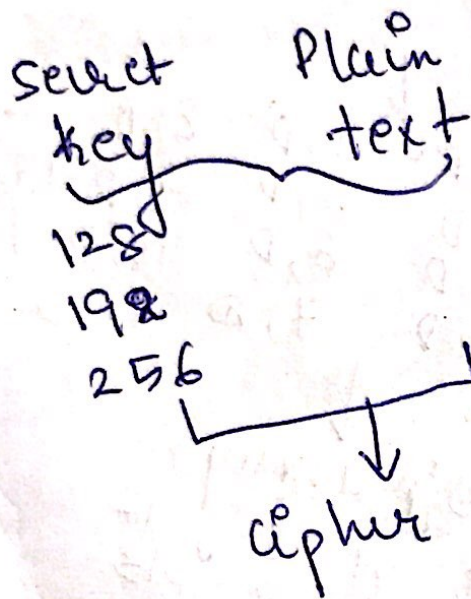 Secret Plain
key text
128
192
256
cipher